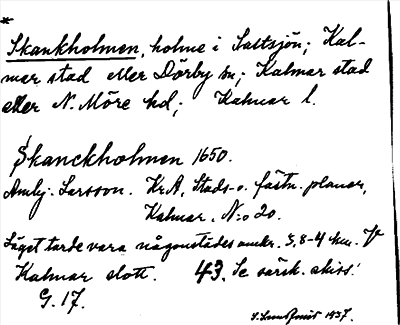 *
Skankholmen, holme i Saltsjön; Kal-
mar stad eller Dörby sn; Kalmar stad
eller N. Möre hd; Kalmar l.
Skanckholmen 1650.
Andj. Larsson. Kr.A, Stads- o. fästn. planer,
Kalmar. N:o 20.
Läget torde vara någonstädes omkr. 3,8-4 km. V
Kalmar slott. 43. Se särsk. skiss!
G. 17.
1937.